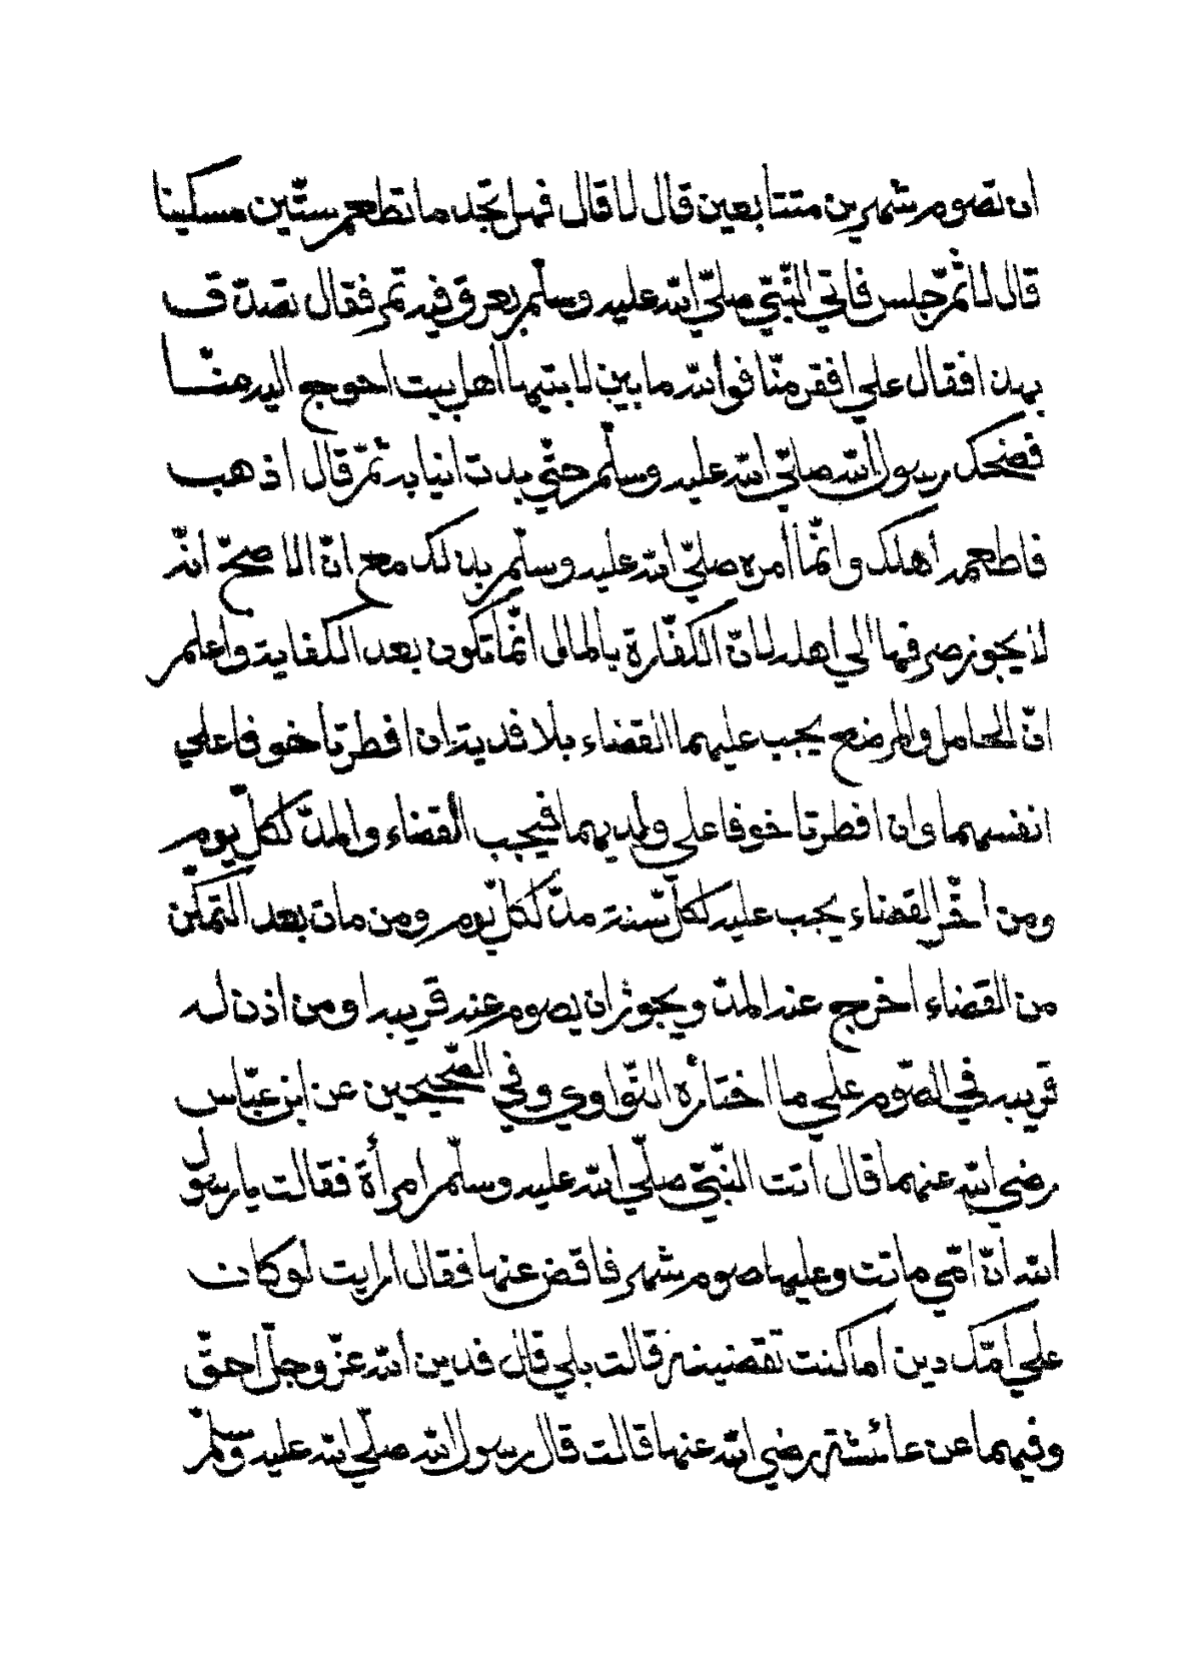 ان تصوم شهرين متتابعين قال لا قال فهل تجد ما تطعم ستّين مسكينا
قال لا ثمّ جلس فاتي النّبيّ صلّي الله عليه وسلّم بعرق فيه تمر فقال تصدّق
بهذا فقال علي افقر منّا فوالله ما بين لابتيها اهل بيت احوج اليه منّا
فضحك رسول الله صلّي الله عليه وسلّم حتّي بدت انيابه ثمّ قال اذهب
فاطعمه اهلك وانّما امره صلّي الله عليه وسلّم بذلك مع انّ الاصحّ انّه
لا يجوز صرفها الي اهله لانّ الكفّارة بالمال انّما تكون بعد الكفاية واعلم
انّ الحامل والمرضع يجب عليهما القضاء بلا فدية ان افطرتا خوفا علي
انفسهما وان افطرتا خوفا علي ولديهما فيجب القضاء والمدّ لكلّ يوم
ومن اخّر القضاء يجب عليه لكلّ سنة مدّ لكلّ يوم ومن مات بعد التّمكّن
من القضاء اخرج عنه المدّ ويجوز ان يصوم عنه قريبه او من اذن له
قريبه في الصّوم علي ما اختاره النّواوي وفي الصّحيحين عن ابن عبّاس
رضي الله عنهما قال اتت النّبيّ صلّي الله عليه وسلّم امرأة فقالت يا رسول
الله انّ امّي ماتت وعليها صوم شهر فاقض عنها فقال ارايت لو كان
علي امّك دين اما كنت تقضينه قالت بلي قال فدين الله عزّ وجلّ احقّ
وفيهما عن عائشة رضي الله عنها قالت قال رسول الله صلّي الله عليه وسلّم